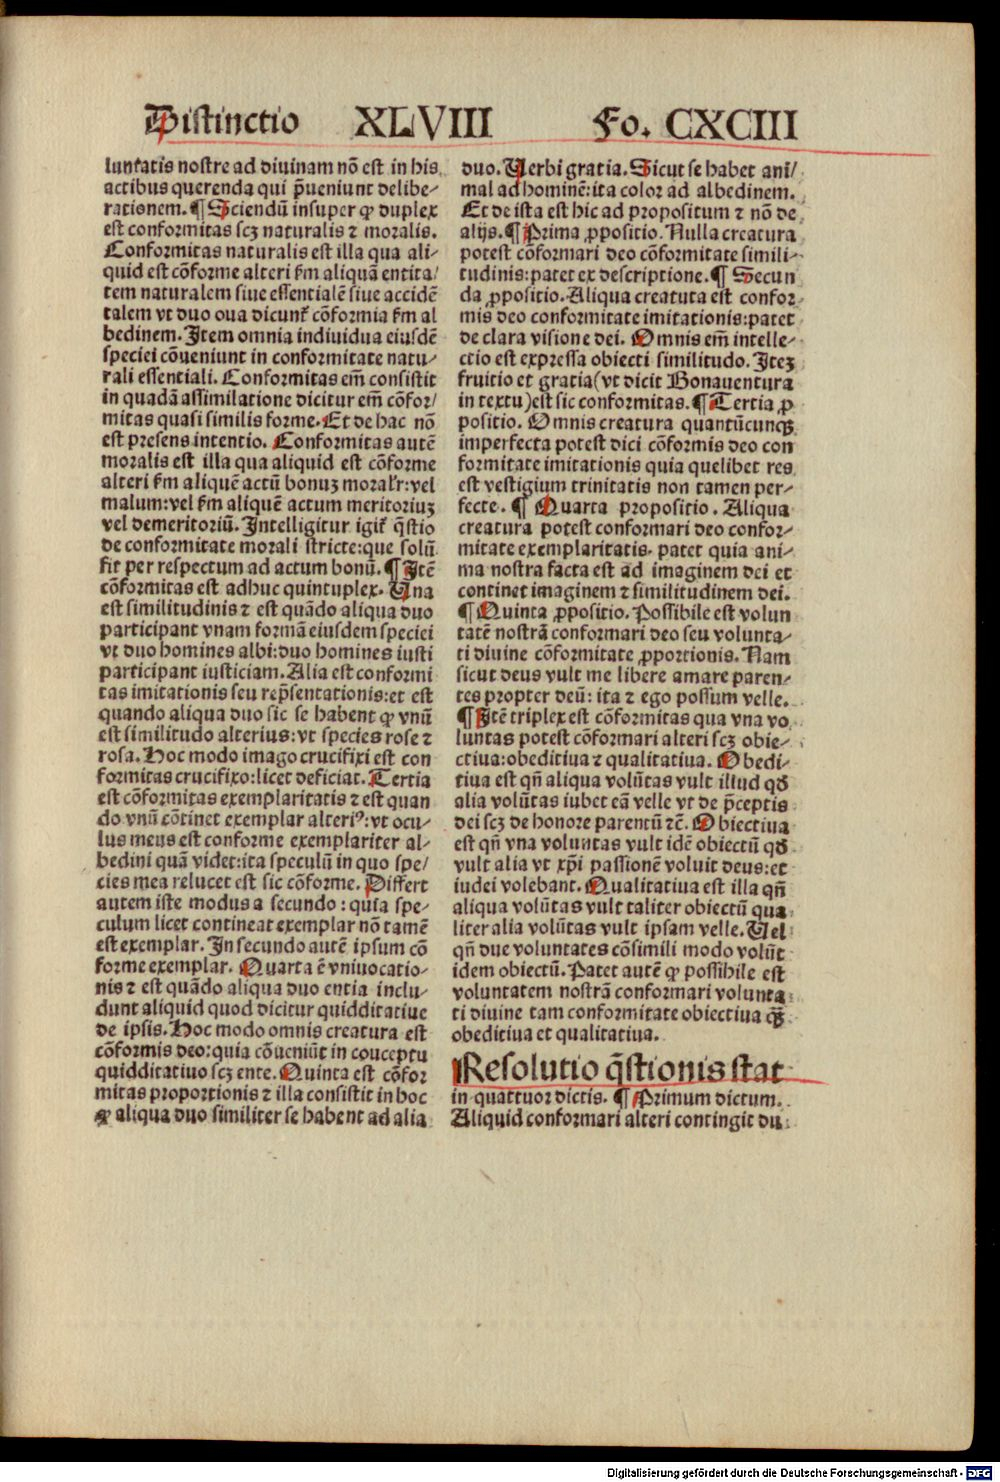 Distinctio XLVIII Fo. CXCIII
luntatis nostre ad diuinam nō est in his
actibus querenda qui p̄ueniunt delibe-
rationem. ¶ Sciendū insuper ꝙ duplex
est conformitas scꝫ naturalis ⁊ moralis.
Conformitas naturalis est illa qua ali-
quid est cōforme alteri ẜm aliquā entita/
tem naturalem siue essentialē siue accidē
talem vt duo oua dicunt᷑ cōformia ẜm al
bedinem. Item omnia indiuidua eiusdē
speciei cōueniunt in conformitate natu-
rali essentiali. Conformitas em̄ consistit
in quadā assimilatione dicitur em̄ cōfor/
mitas quasi similis forme. Et de hac nō
est presens intentio. Conformitas autē
moralis est illa qua aliquid est cōforme
alteri ẜm aliquē actū bonuꝫ moral'r: vel
malum: vel ẜm aliquē actum meritoriuꝫ
vel demeritoriū. Intelligitur igit᷑ q̄stio
de conformitate morali stricte: que solū
fit per respectum ad actum bonū. ¶ Itē
cōformitas est adhuc quintuplex. Una
est similitudinis ⁊ est quādo aliqua duo
participant vnam formā eiusdem speciei
vt duo homines albi: duo homines iusti
participant iusticiam. Alia est conformi
tas imitationis seu rep̄sentationis: et est
quando aliqua duo sic se habent ꝙ vnū
est similitudo alterius: vt species rose ⁊
rosa. Hoc modo imago crucifixi est con
formitas crucifixo: licet deficiat. Tertia
est cōformitas exemplaritatis ⁊ est quan
do vnū cōtinet exemplar alteriꝰ: vt ocu-
lus meus est conforme exemplariter al-
bedini quā videt: ita speculū in quo spe/
cies mea relucet est sic cōforme. Differt
autem iste modus a secundo: quia spe-
culum licet contineat exemplar nō tamē
est exemplar. In secundo autē ipsum cō
forme exemplar. Quarta ē vniuocatio-
nis ⁊ est quādo aliqua duo entia inclu-
dunt aliquid quod dicitur quidditatiue
de ipsis. Hoc modo omnis creatura est
cōformis deo: quia cōueniūt in couceptu
quidditatiuo scꝫ ente. Quinta est cōfor
mitas proportionis ⁊ illa consistit in hoc
ꝙ aliqua duo similiter se habent ad alia
duo. Uerbi gratia. Sicut se habet ani/
mal ad hominē: ita coloꝛ ad albedinem.
Et de ista est hic ad propositum ⁊ nō de
alijs. ¶ Prima ꝓpositio. Nulla creatura
potest cōformari deo cōformitate simili-
tudinis: patet ex descriptione. ¶ Secun
da ꝓpositio. Aliqua creatura est confor-
mis deo conformitate imitationis: patet
de clara visione dei. Omnis em̄ intelle-
ctio est expressa obiecti similitudo. Iteꝫ
fruitio et gratia (vt dicit Bonauentura
in textu) est sic conformitas. ¶ Tertia ꝓ
positio. Omnis creatura quantūcunqꝫ
imperfecta potest dici cōformis deo con
formitate imitationis quia quelibet res
est vestigium trinitatis non tamen per-
fecte. ¶ Quarta propositio. Aliqua
creatura potest conformari deo confor-
mitate exemplaritatis. patet quia ani-
ma nostra facta est ad imaginem dei et
continet imaginem ⁊ similitudinem dei.
¶ Quinta ꝓpositio. Possibile est volun
tatē nostrā conformari deo seu volunta-
ti diuine cōformitate ꝓportionis. Nam
sicut deus vult me libere amare paren-
tes propter deū: ita ⁊ ego possum velle.
¶ Itē triplex est cōformitas qua vna vo
luntas potest cōformari alteri scꝫ obie-
ctiua: obeditiua ⁊ qualitatiua. Obedi-
tiua est qn̄ aliqua volūtas vult illud qđ
alia volūtas iubet eā velle vt de p̄ceptis
dei scꝫ de honore parentū ⁊c̄. Obiectiua
est qn̄ vna voluntas vult idē obiectū qđ
vult alia vt xp̄i passionē voluit deus: et
iudei volebant. Qualitatiua est illa qn̄
aliqua volūtas vult taliter obiectū qua
liter alia volūtas vult ipsam velle. Uel
qn̄ due voluntates cōsimili modo volūt
idem obiectū. Patet autē ꝙ possibile est
voluntatem nostrā conformari volunta
ti diuine tam conformitate obiectiua qꝫ̄
obeditiua et qualitatiua.
Resolutio q̄stionis stat
in quattuor dictis. ¶ Primum dictum.
Aliquid conformari alteri contingit du
Digitalisierung gefördert durch die Deutsche Forschungsgemeinschaft - DFG